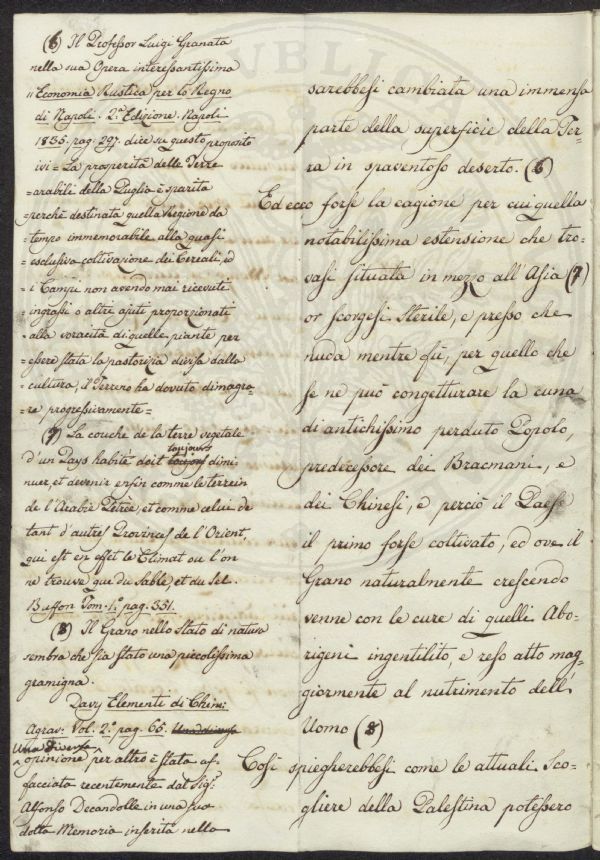 (6) Il Professor Luigi Granata
nella sua Opera interessantissima
"Economia Rustica per lo Regno
di Napoli. 2ª Edizione. Napoli
1835. pag. 297. dice su questo proposito
ivi = La prosperità delle Terre
=arabili della Puglia è sparita
=perchè destinata quella Regione da
=tempo immemorabile alla quasi
=esclusiva coltivazione dei Cereali, ed
=i Campi non avendo mai ricevuti
=ingrassi o altri ajuti proporzionati
=alla voracità di quelle piante per
=essere stata la pastorizia divisa dalla
=cultura, il Terreno ha dovuto dimagra=
=re progressivamente=
(7) La couche de la terre vegetale
d'un Pays habité doit toujours dimi
nuer, et devenir enfin comme le terrein
de l'Arabie Petrée, et comme celui de
tant d'autres Provinces de l'Orient,
qui est en effet le Climat ou l'on
ne trouve que du Sable, et du Sel.
Buffon Tom. 1º. pag. 331.
(8) Il Grano nello Stato di natura
sembra che sia stato una piccolissima
gramigna.
Davy Elementi di Chim:
Agrar: Vol. 2º. pag. 65. Una diversa
Una diversa
opinione per altro è stata af=
facciata recentemente dal Sigr.
Alfonso Decandolle in una sua
dotta Memoria inserita nella
sarebbesi cambiata una immensa
parte della superficie della Ter=
ra in spaventoso deserto. (6)
Ed ecco forse la cagione per cui quella
notabilissima estensione che tro=
vasi situata in mezzo all'Asia (7)
or scorgesi Sterile, e presso che
nuda mentre fù, per quello che
se ne può congetturare la cuna
di antichissimo perduto Popolo,
predecessore dei Bracmani, e
dei Chinesi, e perciò il Paese
il primo forse coltivato, ed ove il
Grano naturalmente crescendo
venne con le cure di quelli Abo=
rigeni ingentilito, e reso atto mag=
giormente al nutrimento dell'
Uomo (8)
Così spiegherebbesi come le attuali Sco=
gliere della Palestina potessero